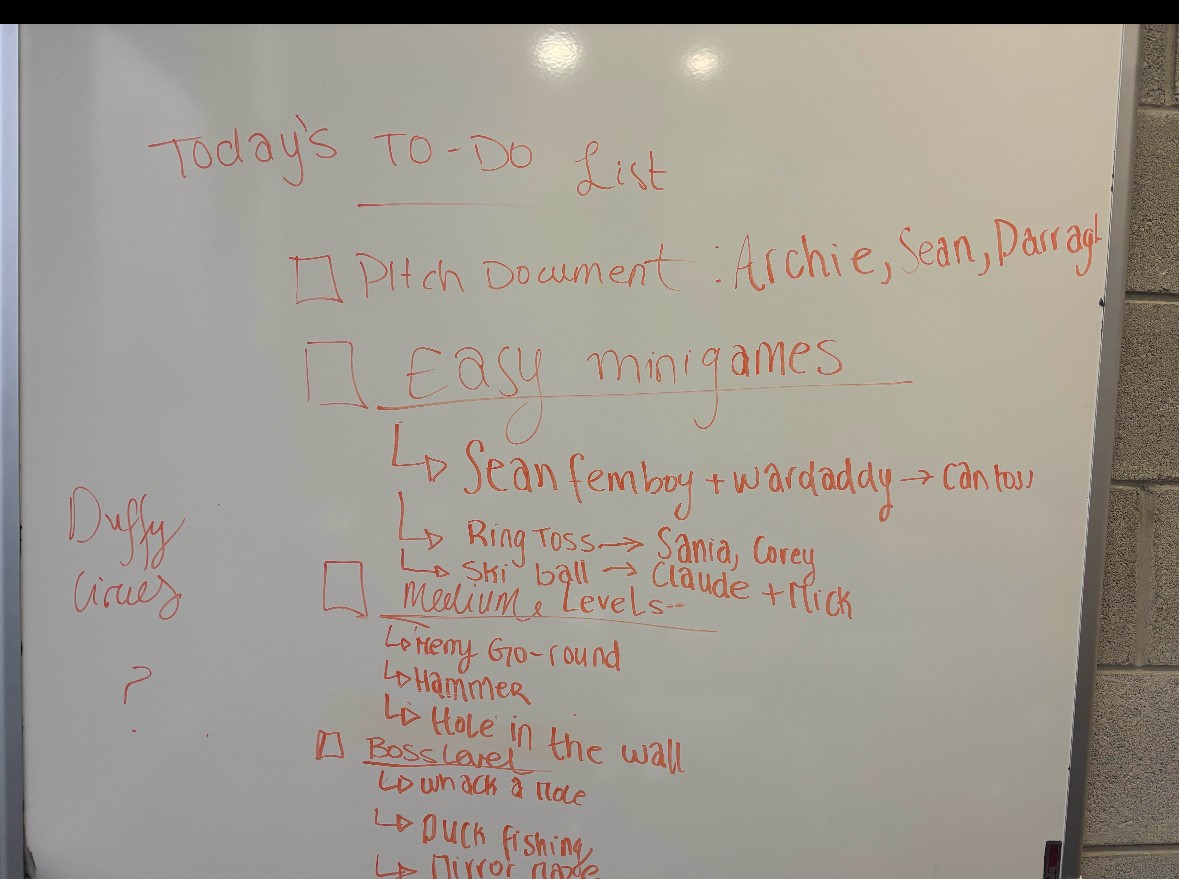 Today's TO-DO List
Pitch Document : Archie, Sean, Darragh
Easy minigames
Sean femboy + wardaddy → Can toss
Ring Toss → Sania, Corey
Ski ball → Claude + Mick
Medium Levels
Merry Go-round
Hammer
Hole in the wall
Boss Level
Whack a Mole
Duck fishing
Mirror maze
Duffy
?